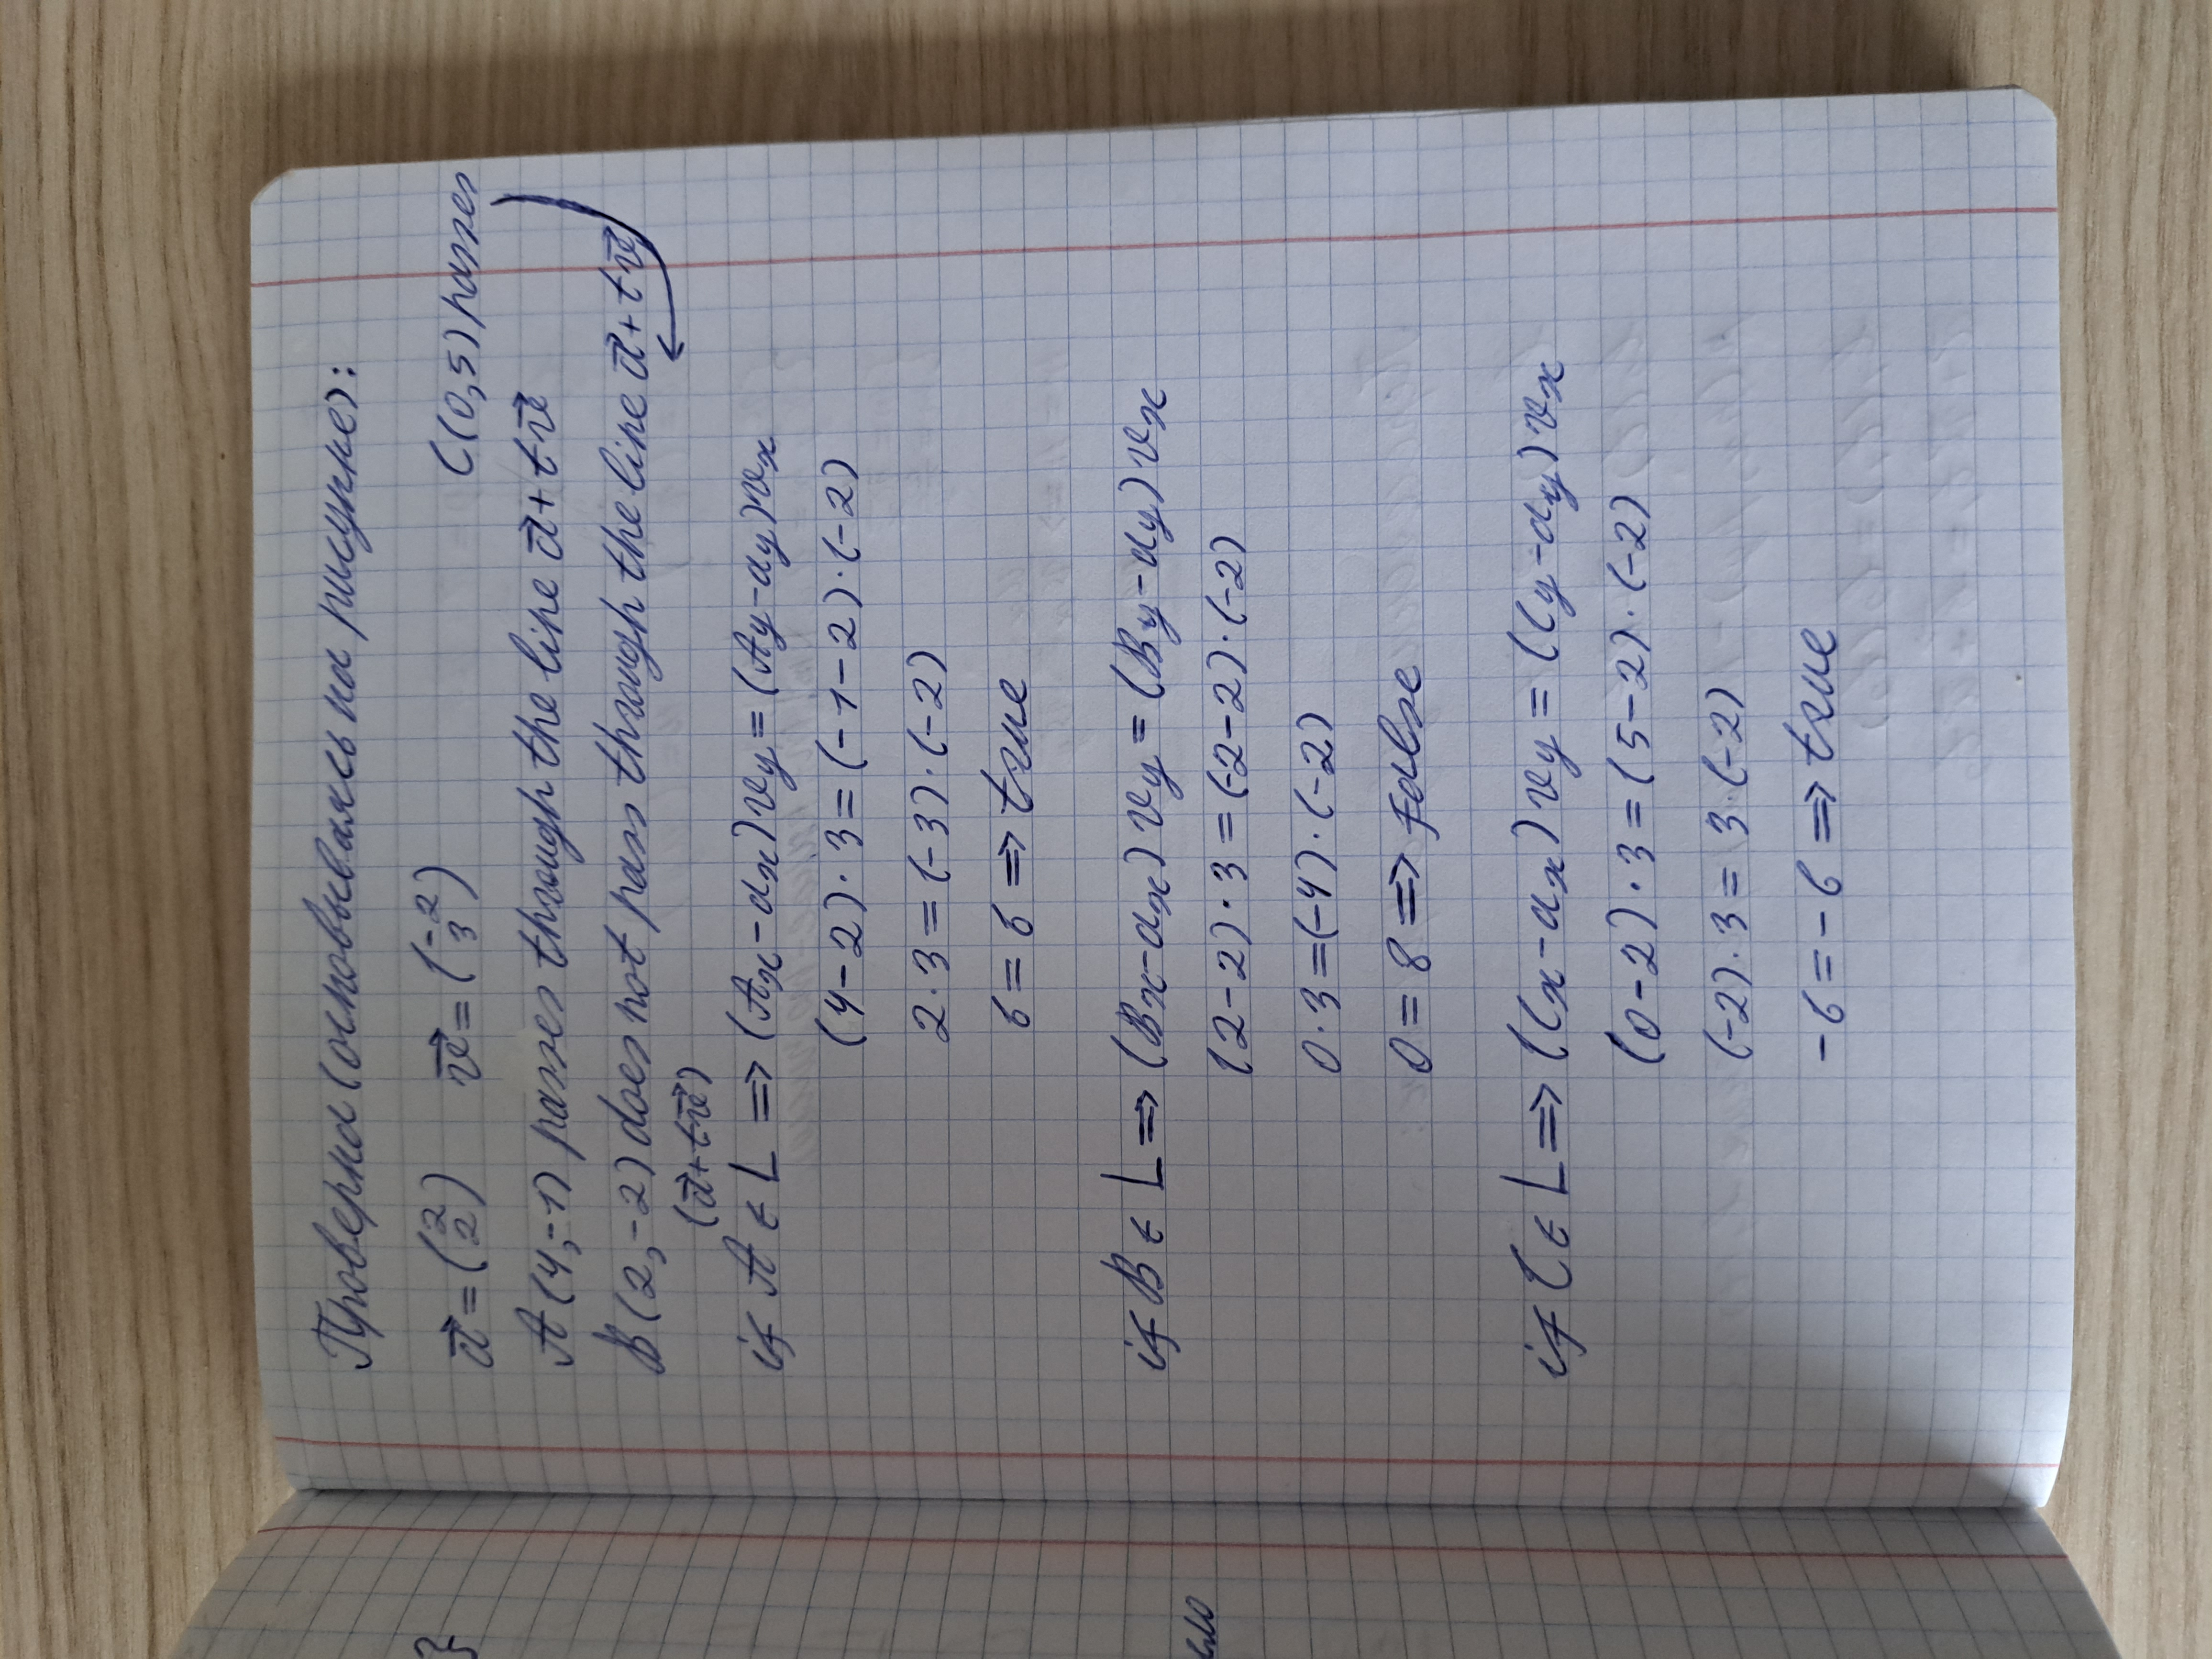 Проверка (основываясь на рисунке):
a⃗ = (2 2) v⃗ = (-2 3) C(0,5) passes
A(4,-1) passes through the line a⃗ + tv⃗
B(2,-2) does not pass through the line a⃗ + tv⃗
(a⃗ + tv⃗)
if A ∈ L ⇒ (Ax - ax)vy = (Ay - ay)vx
(4-2)·3 = (-1-2)·(-2)
2·3 = (-3)·(-2)
6 = 6 ⇒ true
if B ∈ L ⇒ (Bx - ax)vy = (By - ay)vx
(2-2)·3 = (-2-2)·(-2)
0·3 = (-4)·(-2)
0 = 8 ⇒ false
if C ∈ L ⇒ (Cx - ax)vy = (Cy - ay)vx
(0-2)·3 = (5-2)·(-2)
(-2)·3 = 3·(-2)
-6 = -6 ⇒ true